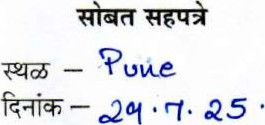 सोबत सहपत्रे
स्थळ – Pune
दिनांक – 29.7.25.